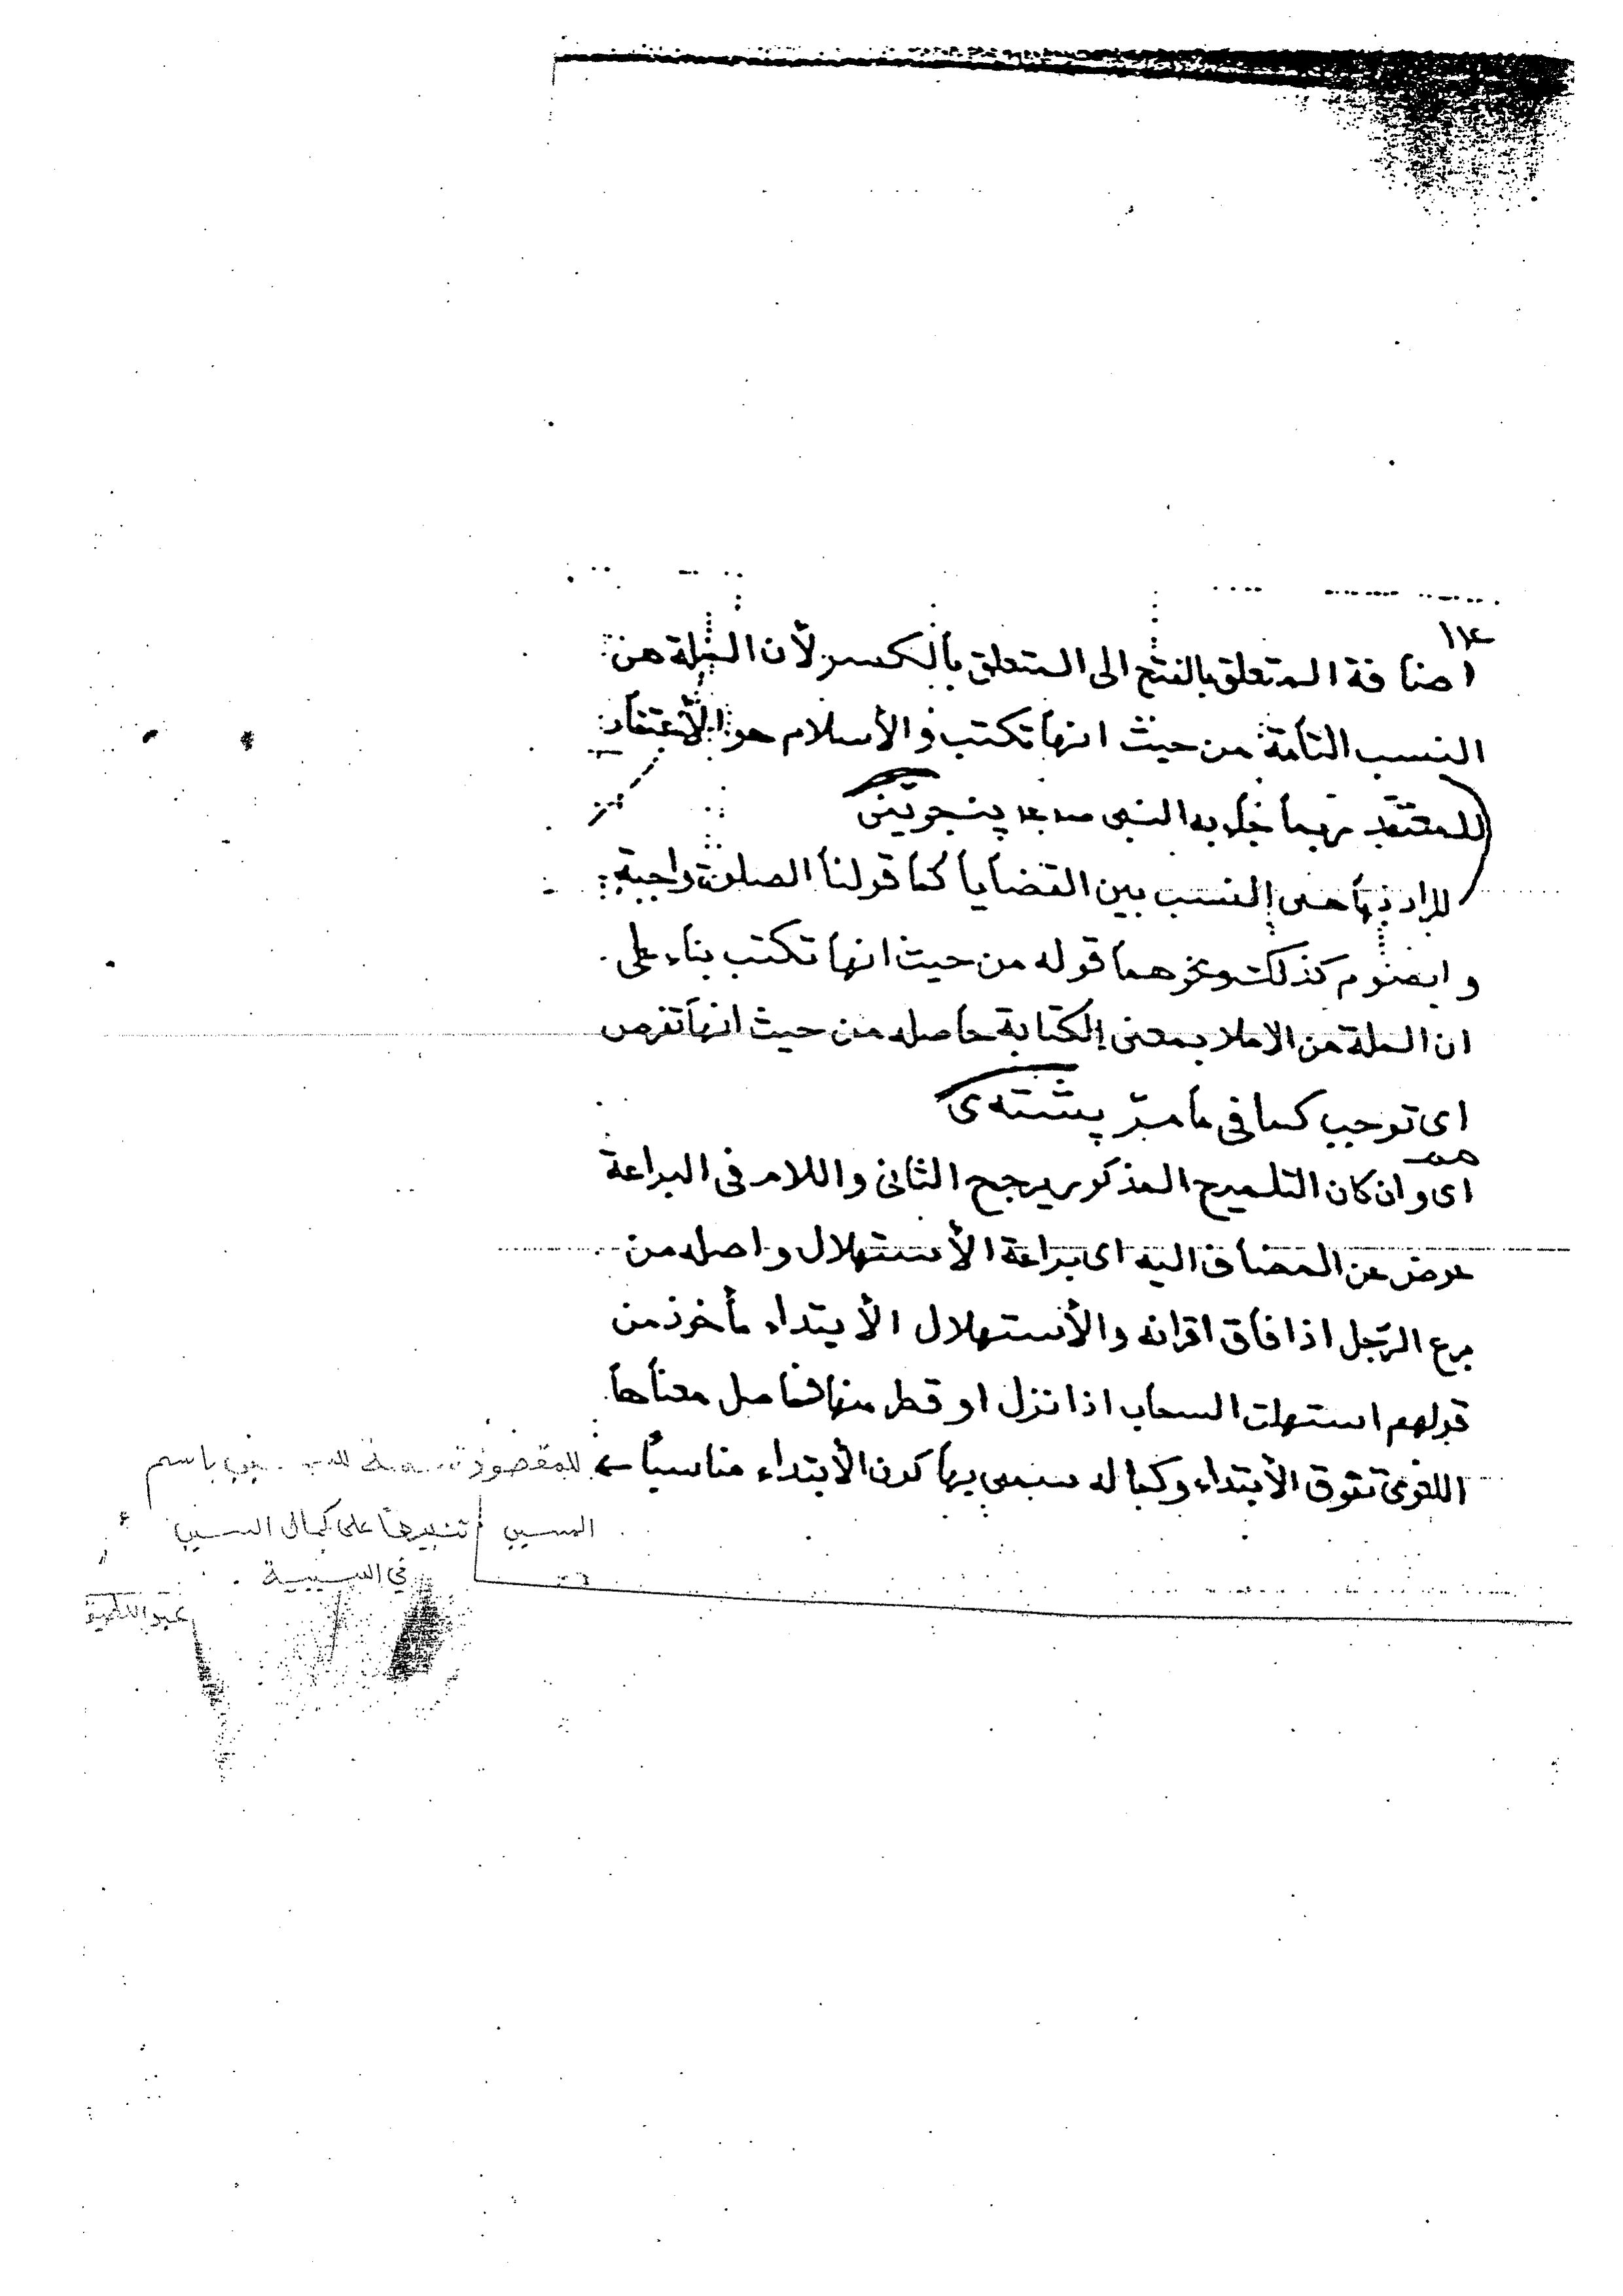 اضافة المتعلق بالفتح الى المتعلق بألكسر لأن الملة هن
النسب التأمة من حيث انها تكتب والأسلام هو الأعتقاد
للمعتقد مهما جاء به النبى پنجوینى
المراد بها هى النسب بين القضايا كما قولنا الصلوة واجبة
و ايصوم كذلك ونحوهما قوله من حيث انها تكتب بناء على
ان الملة من الاملاء بمعنى الكتابة حاصله من حيث انها تفرض
اى توجب كما فى ما مرّ پشتەى
اى وان كان التلميح المذكور يرجح الثانى واللام فى البراعة
عوض عن المضاف اليه اى براعة الأستهلال واصله من
برع الرّجل اذا فاق اقرانه والأستهلال الأبتداء مأخوذ من
قولهم استهلت السحاب اذا نزل او قطر منها فحاصل معنأها
اللغوى تفوق الأبتداء وكماله سمى بها كون الأبتداء مناسبًا للمقصود باسم
المسبب تنبيها على كمال السبب
في السببية